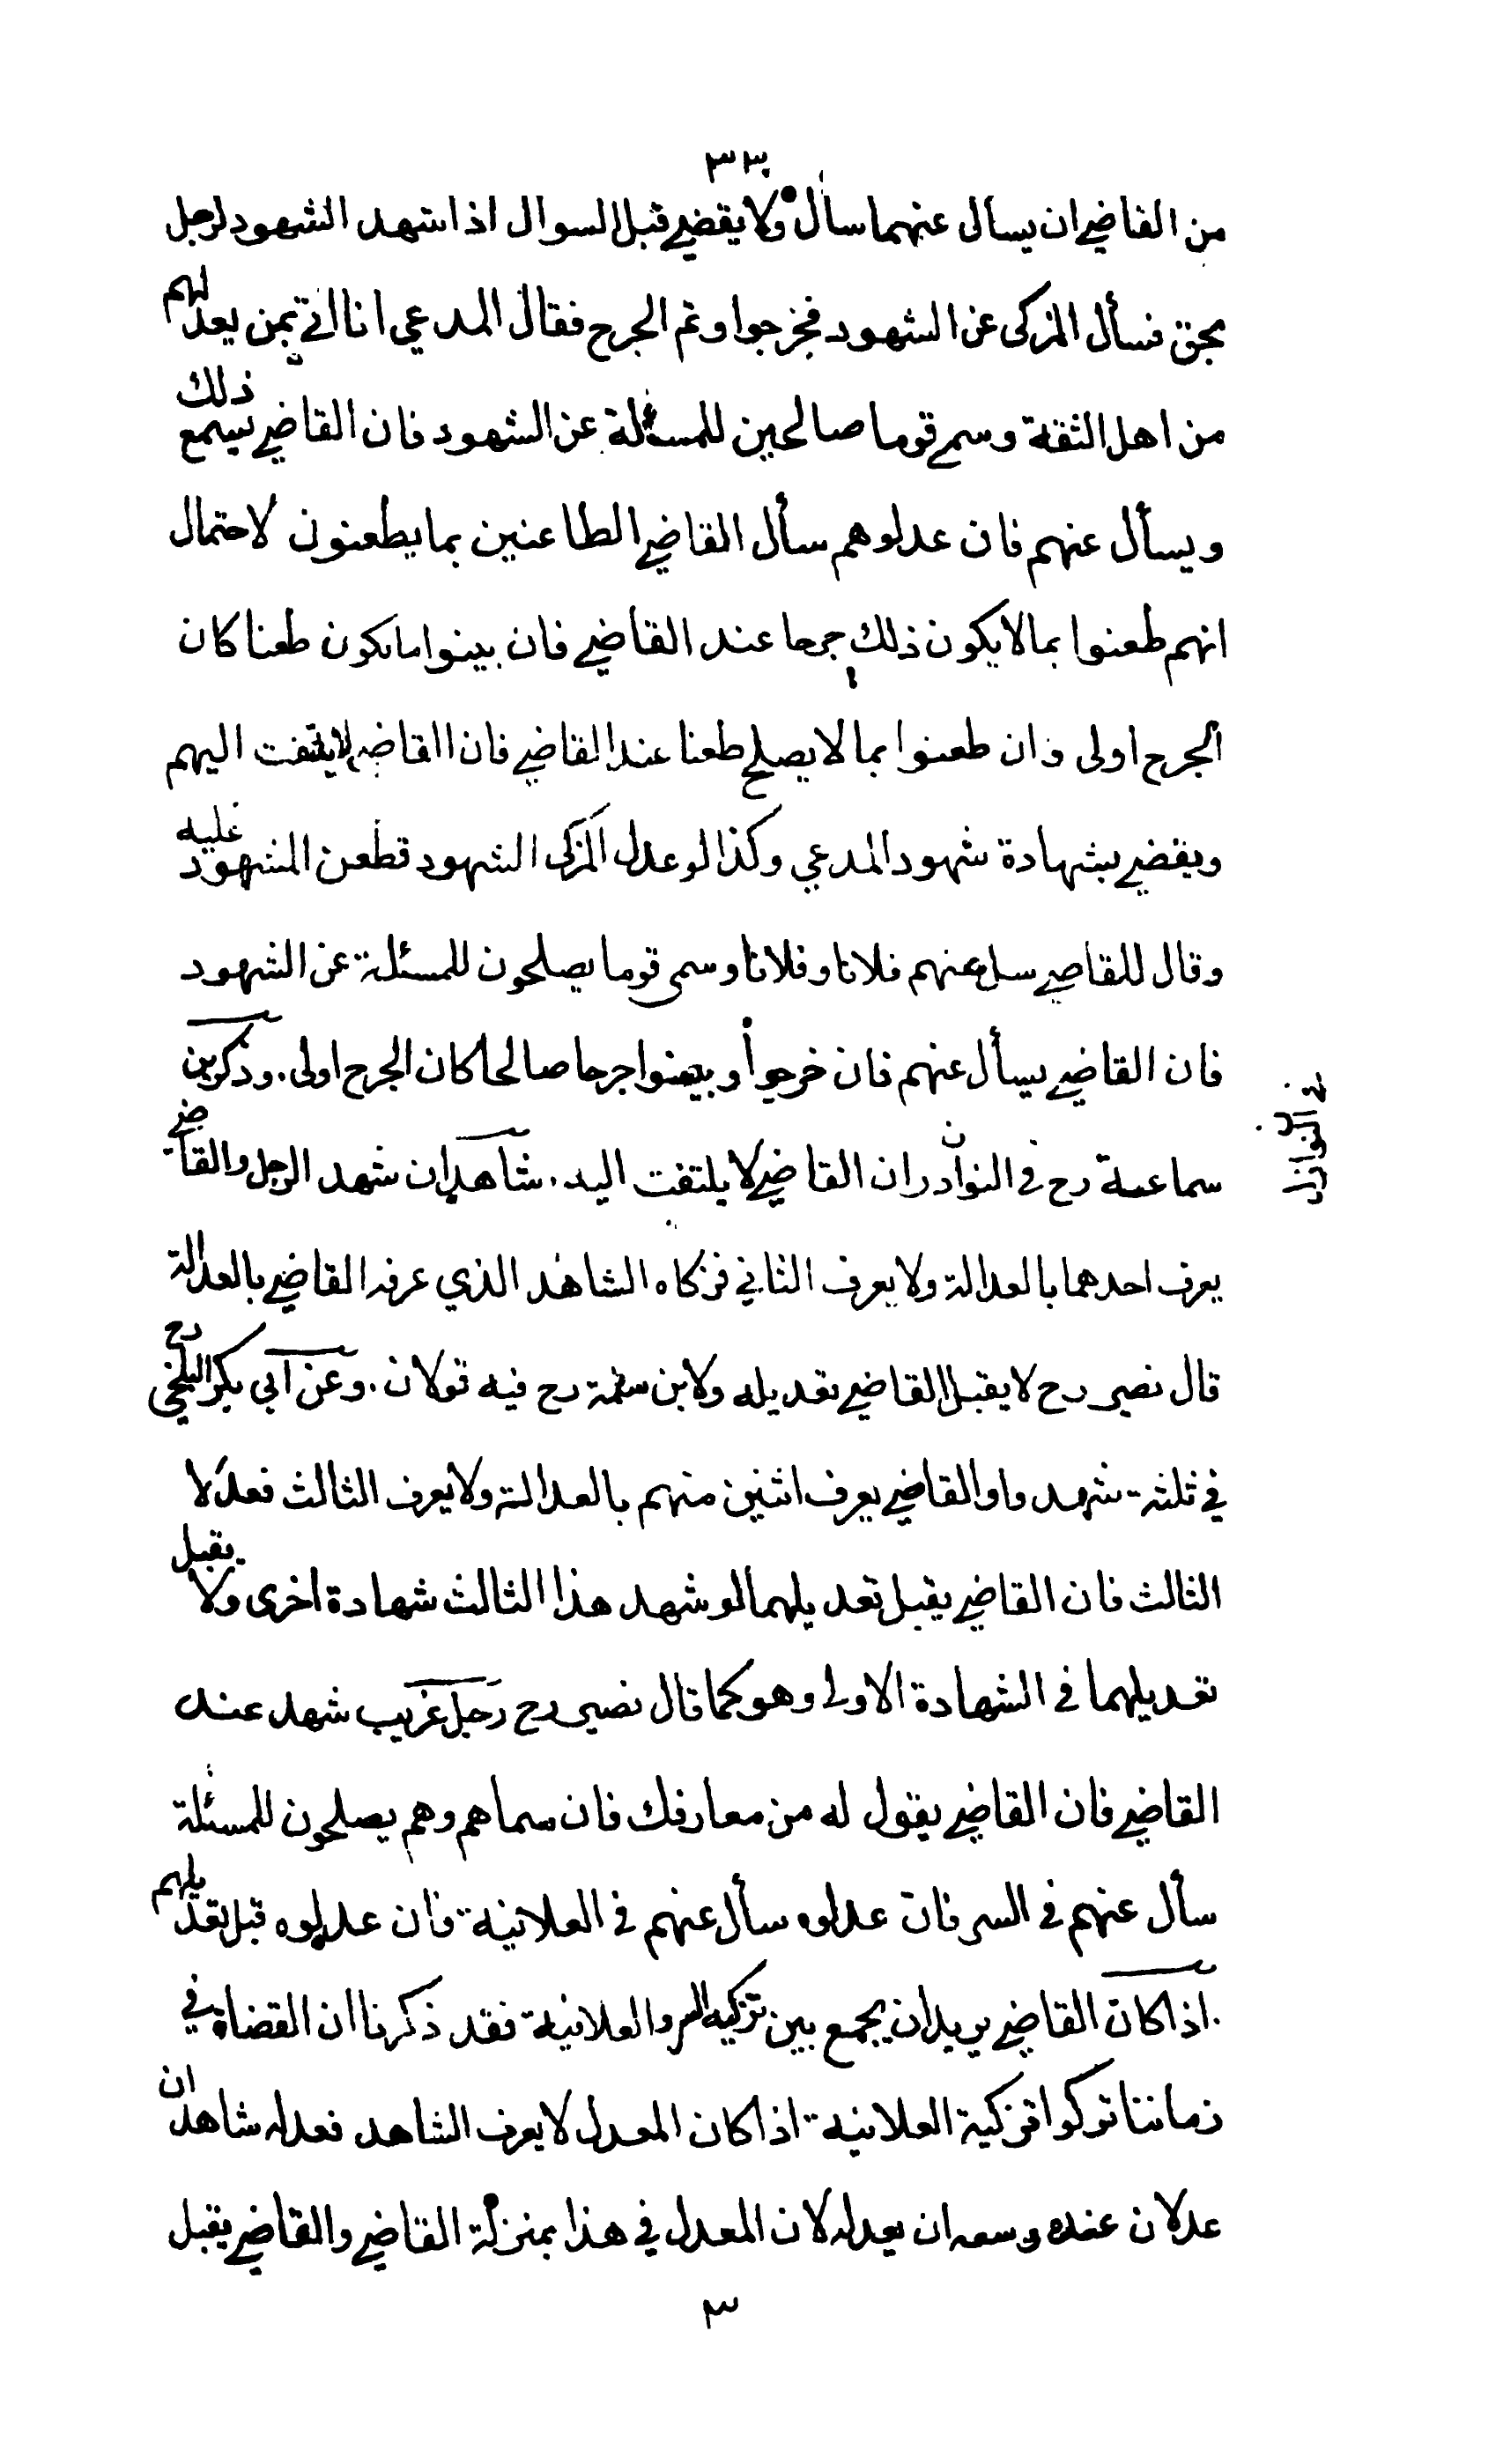 ٣٣
من القاضي ان يسأل عنهما سأل ولا يقضي قبل السوال اذا شهد الشهود لرجل
بحق فسأل المزكى عن الشهود فجرحوا وتم الجرح فقال المدعي انا اتي بمن يعدلهم
من اهل الثقة وسمى قوما صالحين للمسئلة عن الشهود فان القاضي يسمع ذلك
ويسأل عنهم فان عدلوهم سأل القاضي الطاعنين بما يطعنون لاحتمال
انهم طعنوا بما لا يكون ذلك جرحا عند القاضي فان بينوا ما يكون طعنا كان
الجرح اولى وان طعنوا بما لا يصلح طعنا عند القاضي فان القاضي لا يلتفت اليهم
ويقضي بشهادة شهود المدعي وكذا لو عدل المزكى الشهود فطعن المشهود عليه
وقال للقاضي سل عنهم فلانا وفلانا وسمى قوما يصلحون للمسئلة عن الشهود
فان القاضي يسأل عنهم فان جرحوا وبينوا جرحا صالحا كان الجرح اولى . وذكر بن
سماعة رح في النوادر ان القاضي لا يلتفت اليه . شاهدان شهد الرجل والقاضي
في النوازل
يعرف احدهما بالعدالة ولا يعرف الثاني فزكاه الشاهد الذي عرفه القاضي بالعدالة
قال نصير رح لا يقبل القاضي تعديله ولابن سلمة رح فيه قولان . وعن ابي بكر البلخي رح
في ثلثة شهدوا والقاضي يعرف اثنين منهم بالعدالة ولا يعرف الثالث فعدلا
الثالث فان القاضي يقبل تعديلهما لو شهد هذا الثالث شهادة اخرى ولا يقبل
تعديلهما في الشهادة الاولى وهو كما قال نصير رح رجل غريب شهد عند
القاضي فان القاضي يقول له من معارفك فان سماهم وهم يصلحون للمسئلة
سأل عنهم في السر فان عدلوه سأل عنهم في العلانية فان عدلوه قبل تعديلهم
. اذا كان القاضي يريد ان يجمع بين تزكية السر والعلانية فقد ذكرنا ان القضاة في
زماننا تركوا تزكية العلانية اذا كان المعدل لا يعرف الشاهد فعدله شاهدان
عدلان عنده وسعه ان يعدله لان المعدل في هذا بمنزلة القاضي والقاضي يقبل
٣